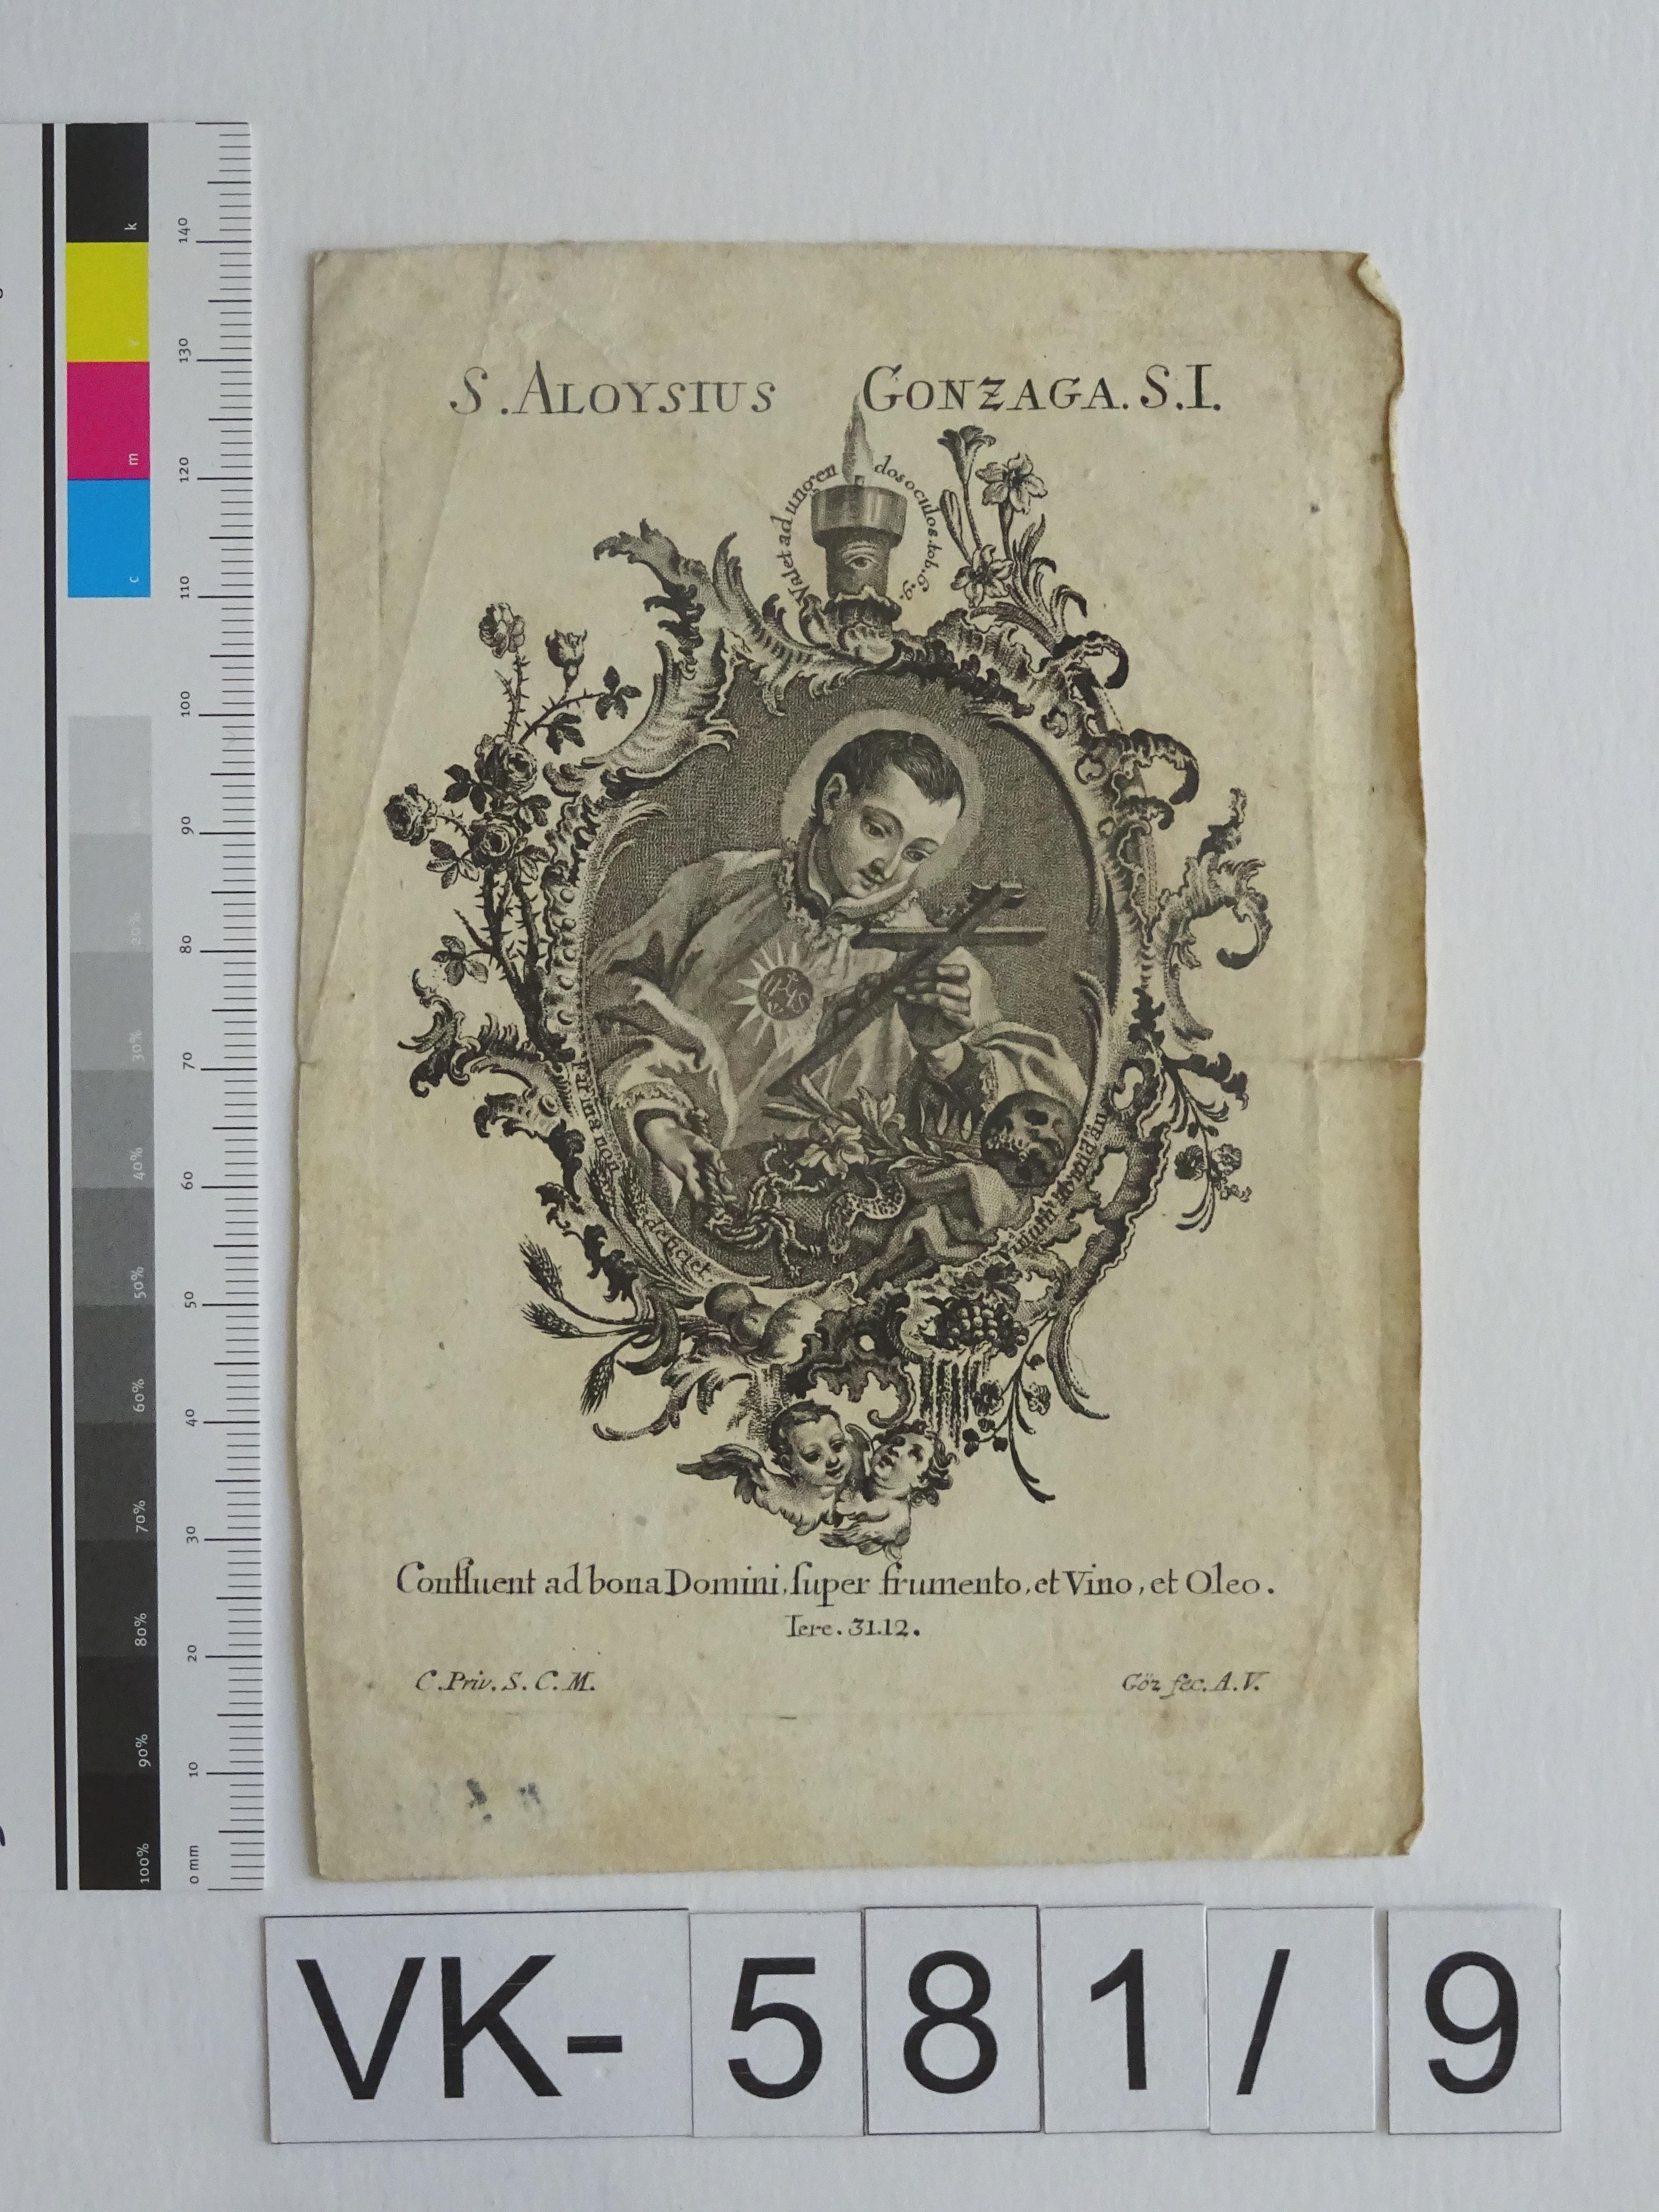 S. ALOYSIUS GONZAGA. S.I.
Valet ad ungen dos oculos. tob. 6. 9.
IHS
farina non deficiet
Confluent ad bona Domini, ſuper frumento, et Vino, et Oleo.
Iere. 31.12.
C. Priv. S. C. M.
Göz fec. A.V.
VK-581/9
k
y
m
c
20%
30%
40%
50%
60%
70%
80%
90%
100%
140
130
120
110
100
90
80
70
60
50
40
30
20
10
0 mm